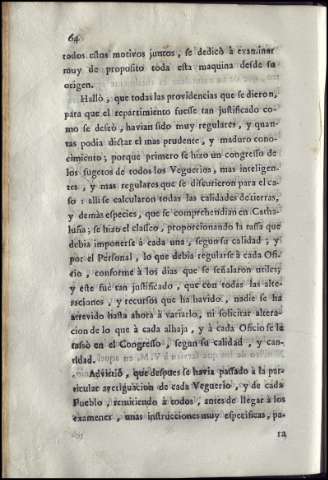 64
todos estos motivos juntos, se dedicò à examinar
muy de proposito toda esta maquina desde su
origen.
Hallò, que todas las providencias que se dieron,
para que el repartimiento fuesse tan justificado co-
mo se deseò, havian sido muy regulares, y quan-
tas podia dictar el mas prudente, y maduro cono-
cimiento; porque primero se hizo un congresso de
los sugetos de todos los Veguerios, mas inteligen-
tes, y mas regulares que se discurrieron para el ca-
so: alli se calcularon todas las calidades de tierras,
y demàs especies, que se comprehendian en Catha-
luña; se hizo el clasico, proporcionando la tassa que
debia imponerse à cada una, segun su calidad; y
por el Personal, lo que debia regularse à cada Ofi-
cio, conforme à los dias que se señalaron utiles;
y este fue tan justificado, que con todas las alte-
raciones, y recursos que ha havido, nadie se ha
atrevido hasta ahora à variarlo, ni solicitar altera-
cion de lo que à cada alhaja, y à cada Oficio se le
tassò en el Congresso, segun su calidad, y can-
tidad.
Advirtiò, que despues se havia passado à la par-
ticular averiguacion de cada Veguerio, y de cada
Pueblo, remitiendo à todos, antes de llegar à los
examenes, unas instrucciones muy especificas, pa-
ra